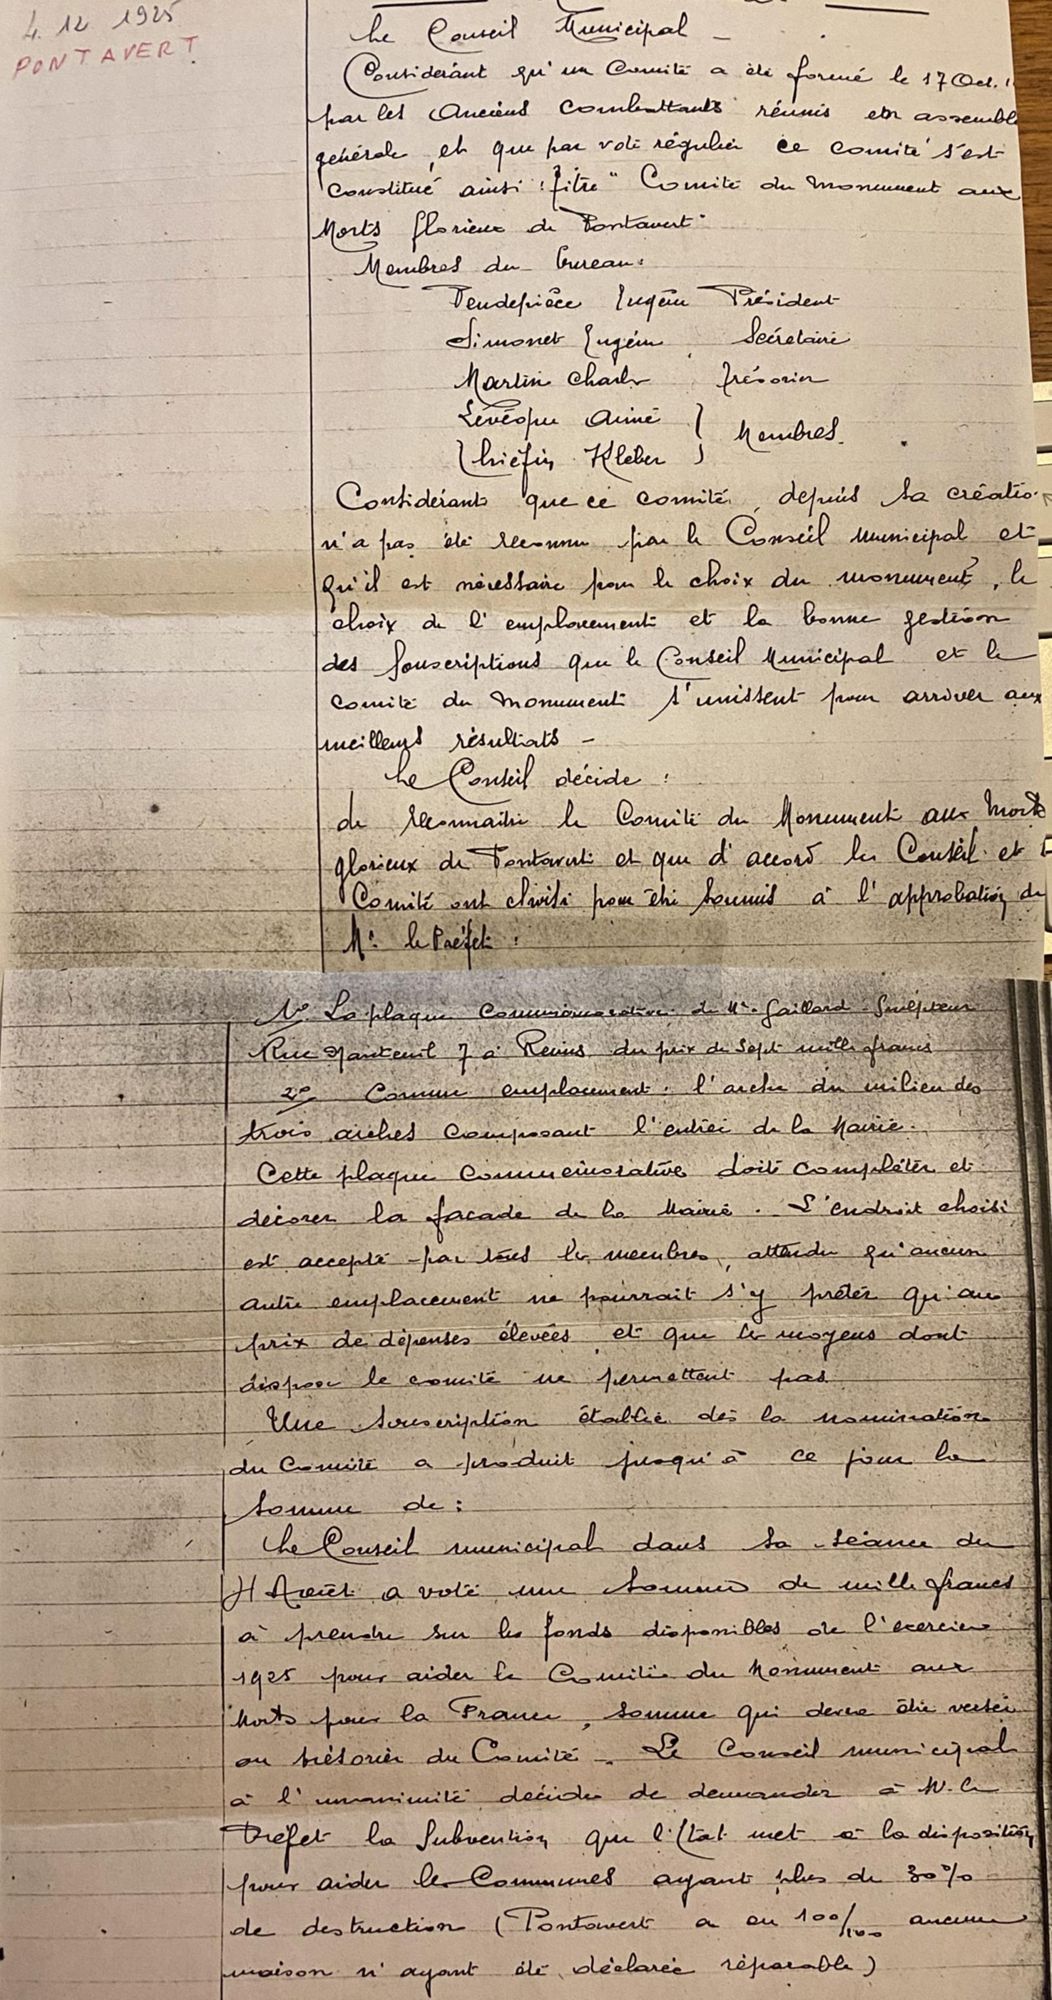 4. 12 1925
PONTAVERT
Le Conseil Municipal -
Considérant qu'un Comité a été formé le 17 Oct.
par les Anciens Combattants réunis en assembl
générale, et que par vote régulier ce comité s'est
constitué ainsi : titre " Comité du Monument aux
Morts glorieux de Pontavert"
Membres du bureau :
Eugène Président
Simonet Eugène Secrétaire
Martin Charles trésorier
Lévêque Aimé
Kléber } Membres.
Considérant que ce comité, depuis sa créatio
n'a pas été reconnu par le Conseil Municipal et
qu'il est nécessaire pour le choix du monument, le
choix de l'emplacement et la bonne gestion
des Souscriptions que le Conseil Municipal et le
comité du Monument s'unissent pour arriver aux
meilleurs résultats -
Le Conseil décide :
de reconnaître le Comité du Monument aux Morts
glorieux de Pontavert et que d'accord les Conseil et
Comité ont choisi pour être soumis à l'approbation de
Mr le Préfet :
1o La plaque Commémorative de Mr Gaillard Sculpteur
Rue Nanteuil 7 à Reims du prix de Sept mille francs
2o Comme emplacement : l'arche du milieu des
trois arches composant l'entrée de la Mairie.
Cette plaque commémorative doit compléter et
décorer la façade de la Mairie. L'endroit choisi
est accepté par tous les membres, attendu qu'aucun
autre emplacement ne pourrait s'y prêter qu'au
prix de dépenses élevées et que les moyens dont
dispose le comité ne permettent pas
Une souscription établie dès la nomination
du Comité a produit jusqu'à ce jour la
somme de :
Le Conseil municipal dans sa séance du
Août a voté une somme de mille francs
à prendre sur les fonds disponibles de l'exercice
1925 pour aider le Comité du Monument aux
Morts pour la France, somme qui devra être versée
au trésorier du Comité - Le Conseil municipal
à l'unanimité décide de demander à M. le
Préfet la Subvention que l'Etat met à la disposition
pour aider les Communes ayant plus de 30%
de destruction (Pontavert a eu 100/100 aucune
maison n'ayant été déclarée réparable)